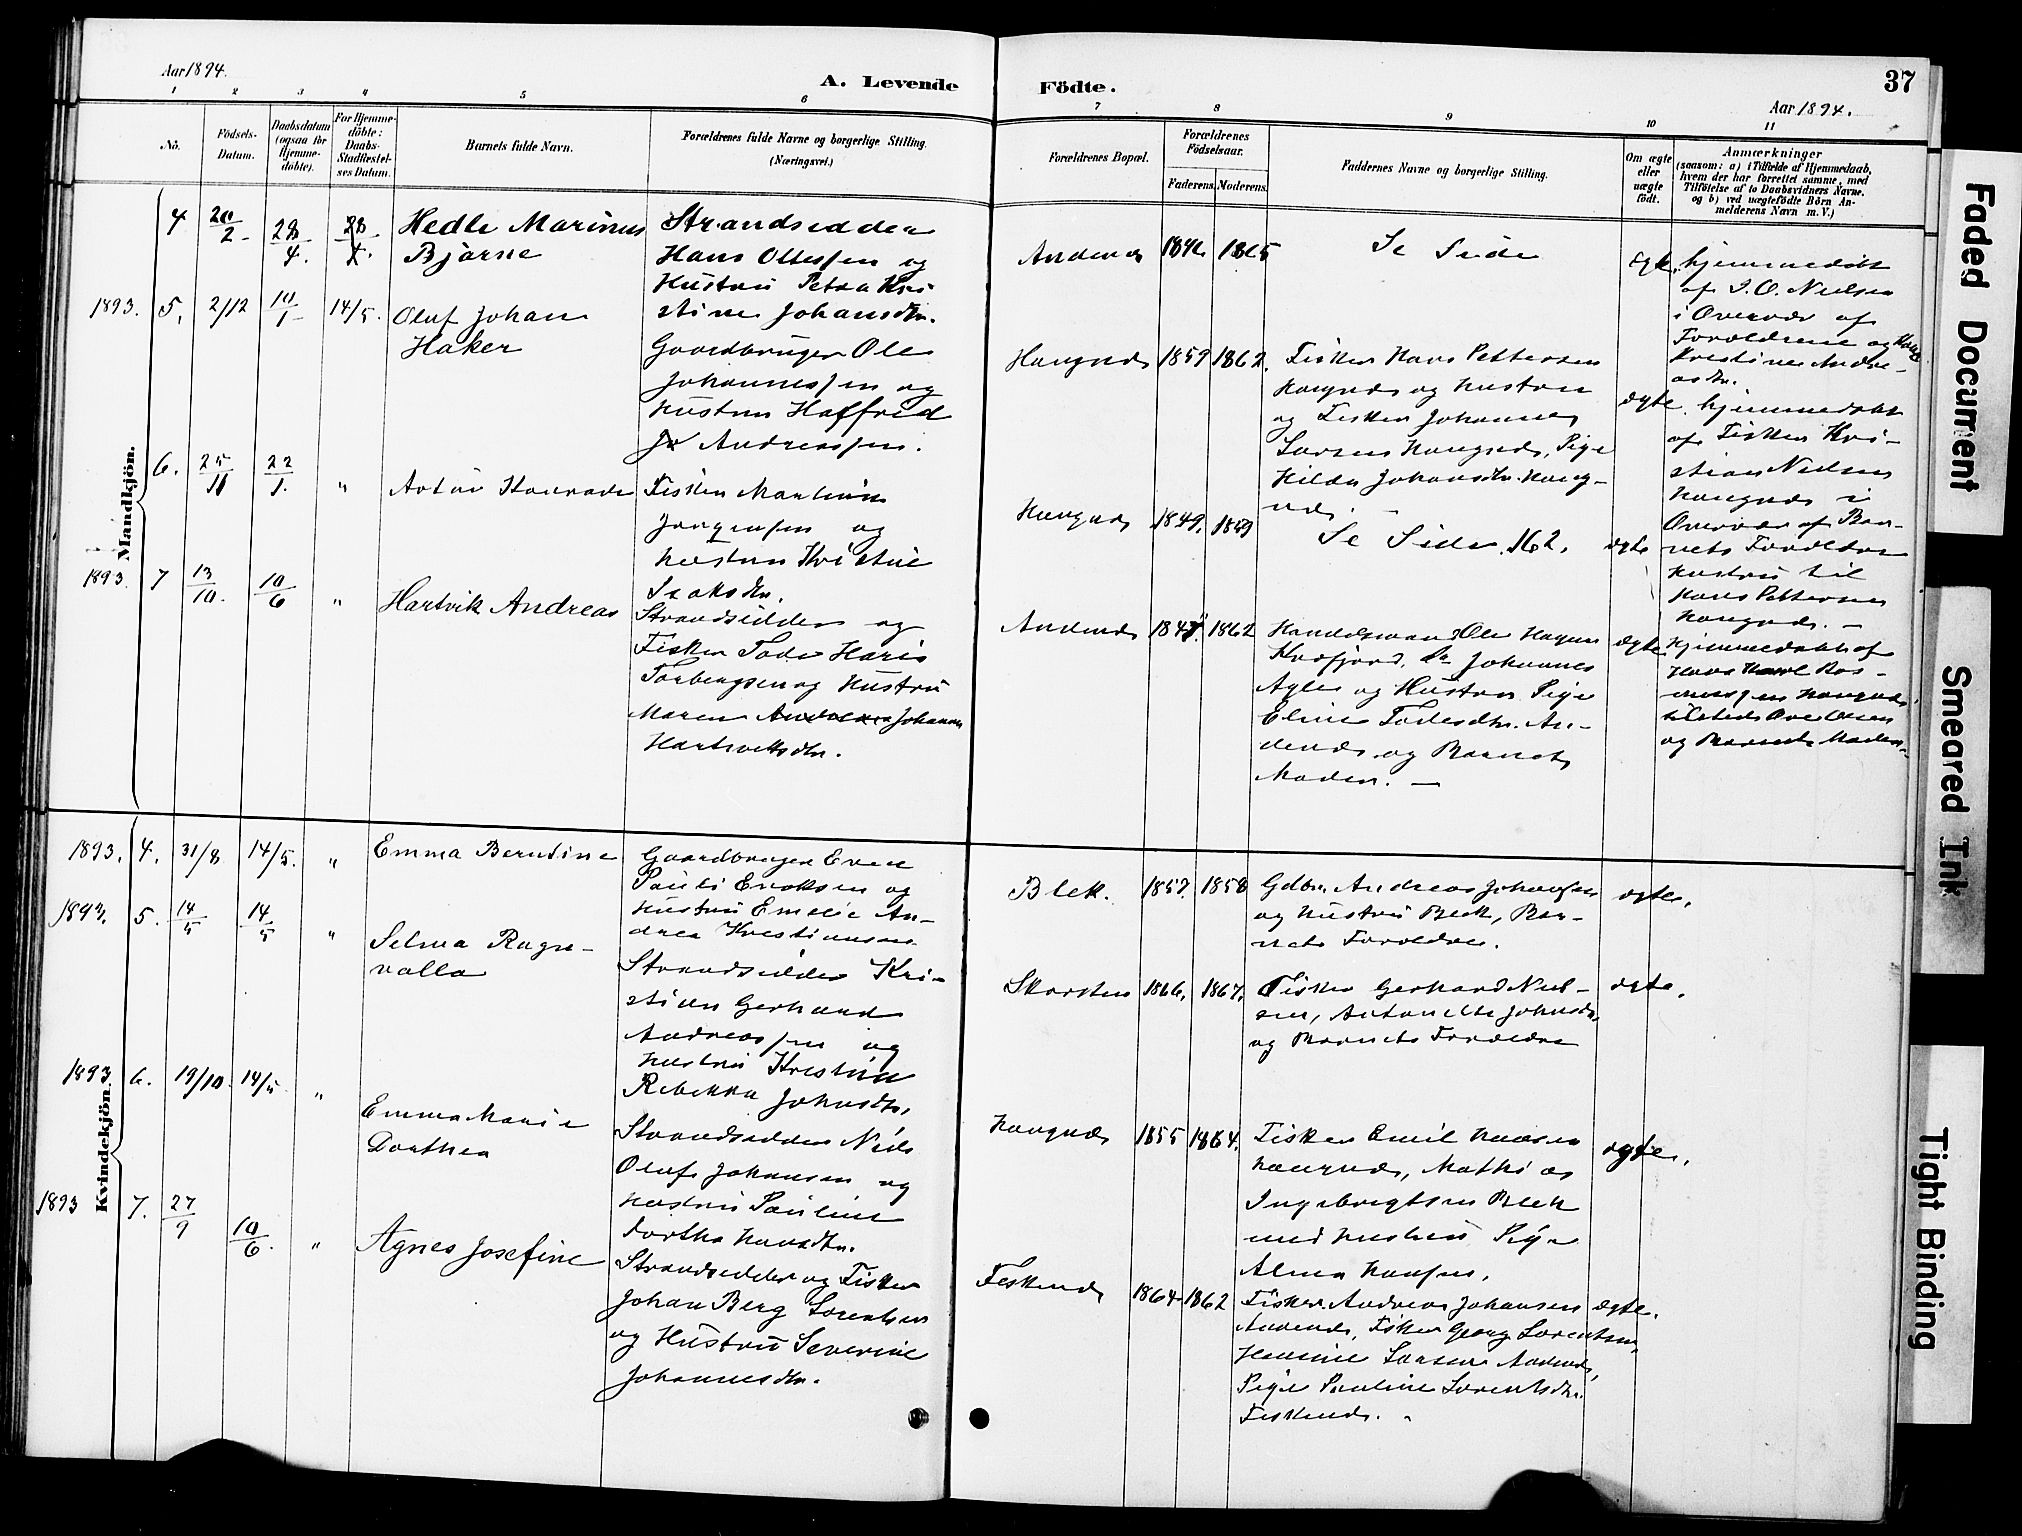 Aar 1894.
A. Levende
Födte.
37
Aar 1894.
1 2 3 4 5 6 7 8 9 10 11
No.
Födsels-
Datum.
Daabsdatum
(ogsaa for
Hjemme-
döbte).
For Hjemme-
döbte:
Daabs-
Stadfæstel-
ses Datum.
Barnets fulde Navn.
Forældrenes fulde Navne og borgerlige Stilling.
(Næringsvei.)
Forældrenes Bopæl.
Forældrenes
Födselsaar.
Faderens.
Moderens.
Faddernes Navne og borgerlige Stilling.
Om ægte
eller
uægte
födt.
Anmærkninger
(saasom: a) i Tilfælde af Hjemmedaab,
hvem der har forrettet samme, med
Tilföielse af to Daabsvidners Navne,
og b) ved uægtefödte Börn An-
melderens Navn m. V.)
Mandkjön.
4
20/2
28/4.
Hedle Marinus
Bjarne
Strandsidder
Hans Ottessen og
Hustru Petra Kri
stine Johansdtr.
Andenes
1865
Se Side
ægte.
hjemmedøbt
af I. O. Nielsen
i Overvær af
Forældrene og
Kristine Andre-
asdtr.
1893.
5.
2/12
10/1
14/5.
Oluf Johan
Haker
Gaardbruger Ole
Johannessen og
Hustru Haffred
Andreassen.
Haugnes
1859
1862.
Fisker Hans Pettersen
Haugnes og Hustru
og Fisker Johannes
Larsen Haugnes, Pige
Hilda Johansdtr. Haug-
nes.
ægte.
hjemmedøbt
af Fisker Kri-
stian Nielsen
Haugnes i
Overvær af Bar-
nets Forældre
Hustru til
Hans Pettersen
Haugnes. -
6.
25/11
22/1.
"
Artur Konrade
Fisker Martinus
Jørgensen og
Hustru Kristine
Isaksdtr.
Haugnes
1849.
1859
Se Side 162.
ægte
1893.
7
13/10.
10/6
"
Hartvik Andreas
Strandsidder og
Fisker Tode Haris
Torbergsen og Hustru
Maren Andrea Johanna
Hartviksdtr.
Andenes
1862
Handelsmand Ole Hagen
Kvæfjord, Johannes
og Hustru Pige
Eline Todesdtr. An-
denes og Barnets
Moder. -
ægte
Hjemmedøbt af
Hans Karl Ras-
mussen Haugnes
tilstede Ove Olsen
og Barnets Moder.
Kvindekjön.
1893.
4.
31/8
14/5.
"
Emma Berndine
Gaardbruger Even
Pauli Eriksen og
Hustru Emelie An-
drea Kristiansen
Blek.
1857.
1858
Gdbr. Andreas Johansen
og Hustru Bleik, Bar-
nets Forældre.
ægte.
1893.
5.
14/5
14/5
"
Selma Ragn-
valla
Strandsidder Kri-
stian Gerhard
Andreassen og
Hustru Kristine
Rebekka Johnsdtr.
Skarsten
1866.
1867.
Fisker Gerhard Niel-
sen, Antonette Johnsdtr.
og Barnets Forældre
ægte.
1893
6.
19/10
14/5
"
Emma Marie
Dorthea
Strandsidder Nils
Oluf Johansen og
Hustru Pauline
Dorthe Hansdtr.
Haugnes
1855
1864.
Fisker Emil Hansen
Haugnes, Mathias
Ingebrigtsen Bleik
med Hustru Pige
Alma Hansen.
ægte.
1893
7.
27/9
10/6.
"
Agnes Josefine
Strandsidder og Fisker
Johan Berg Sorentsen
og Hustru Severine
Johannesdtr.
Feskenes
1864
1862
Fisker Andreas Johansen
Andenes, Fisker Georg Lorentsen,
Larsen Andenes,
Pige Pauline Lorentsdtr.
Feskenes.
ægte.
Faded Document
Smeared Ink
Tight Binding